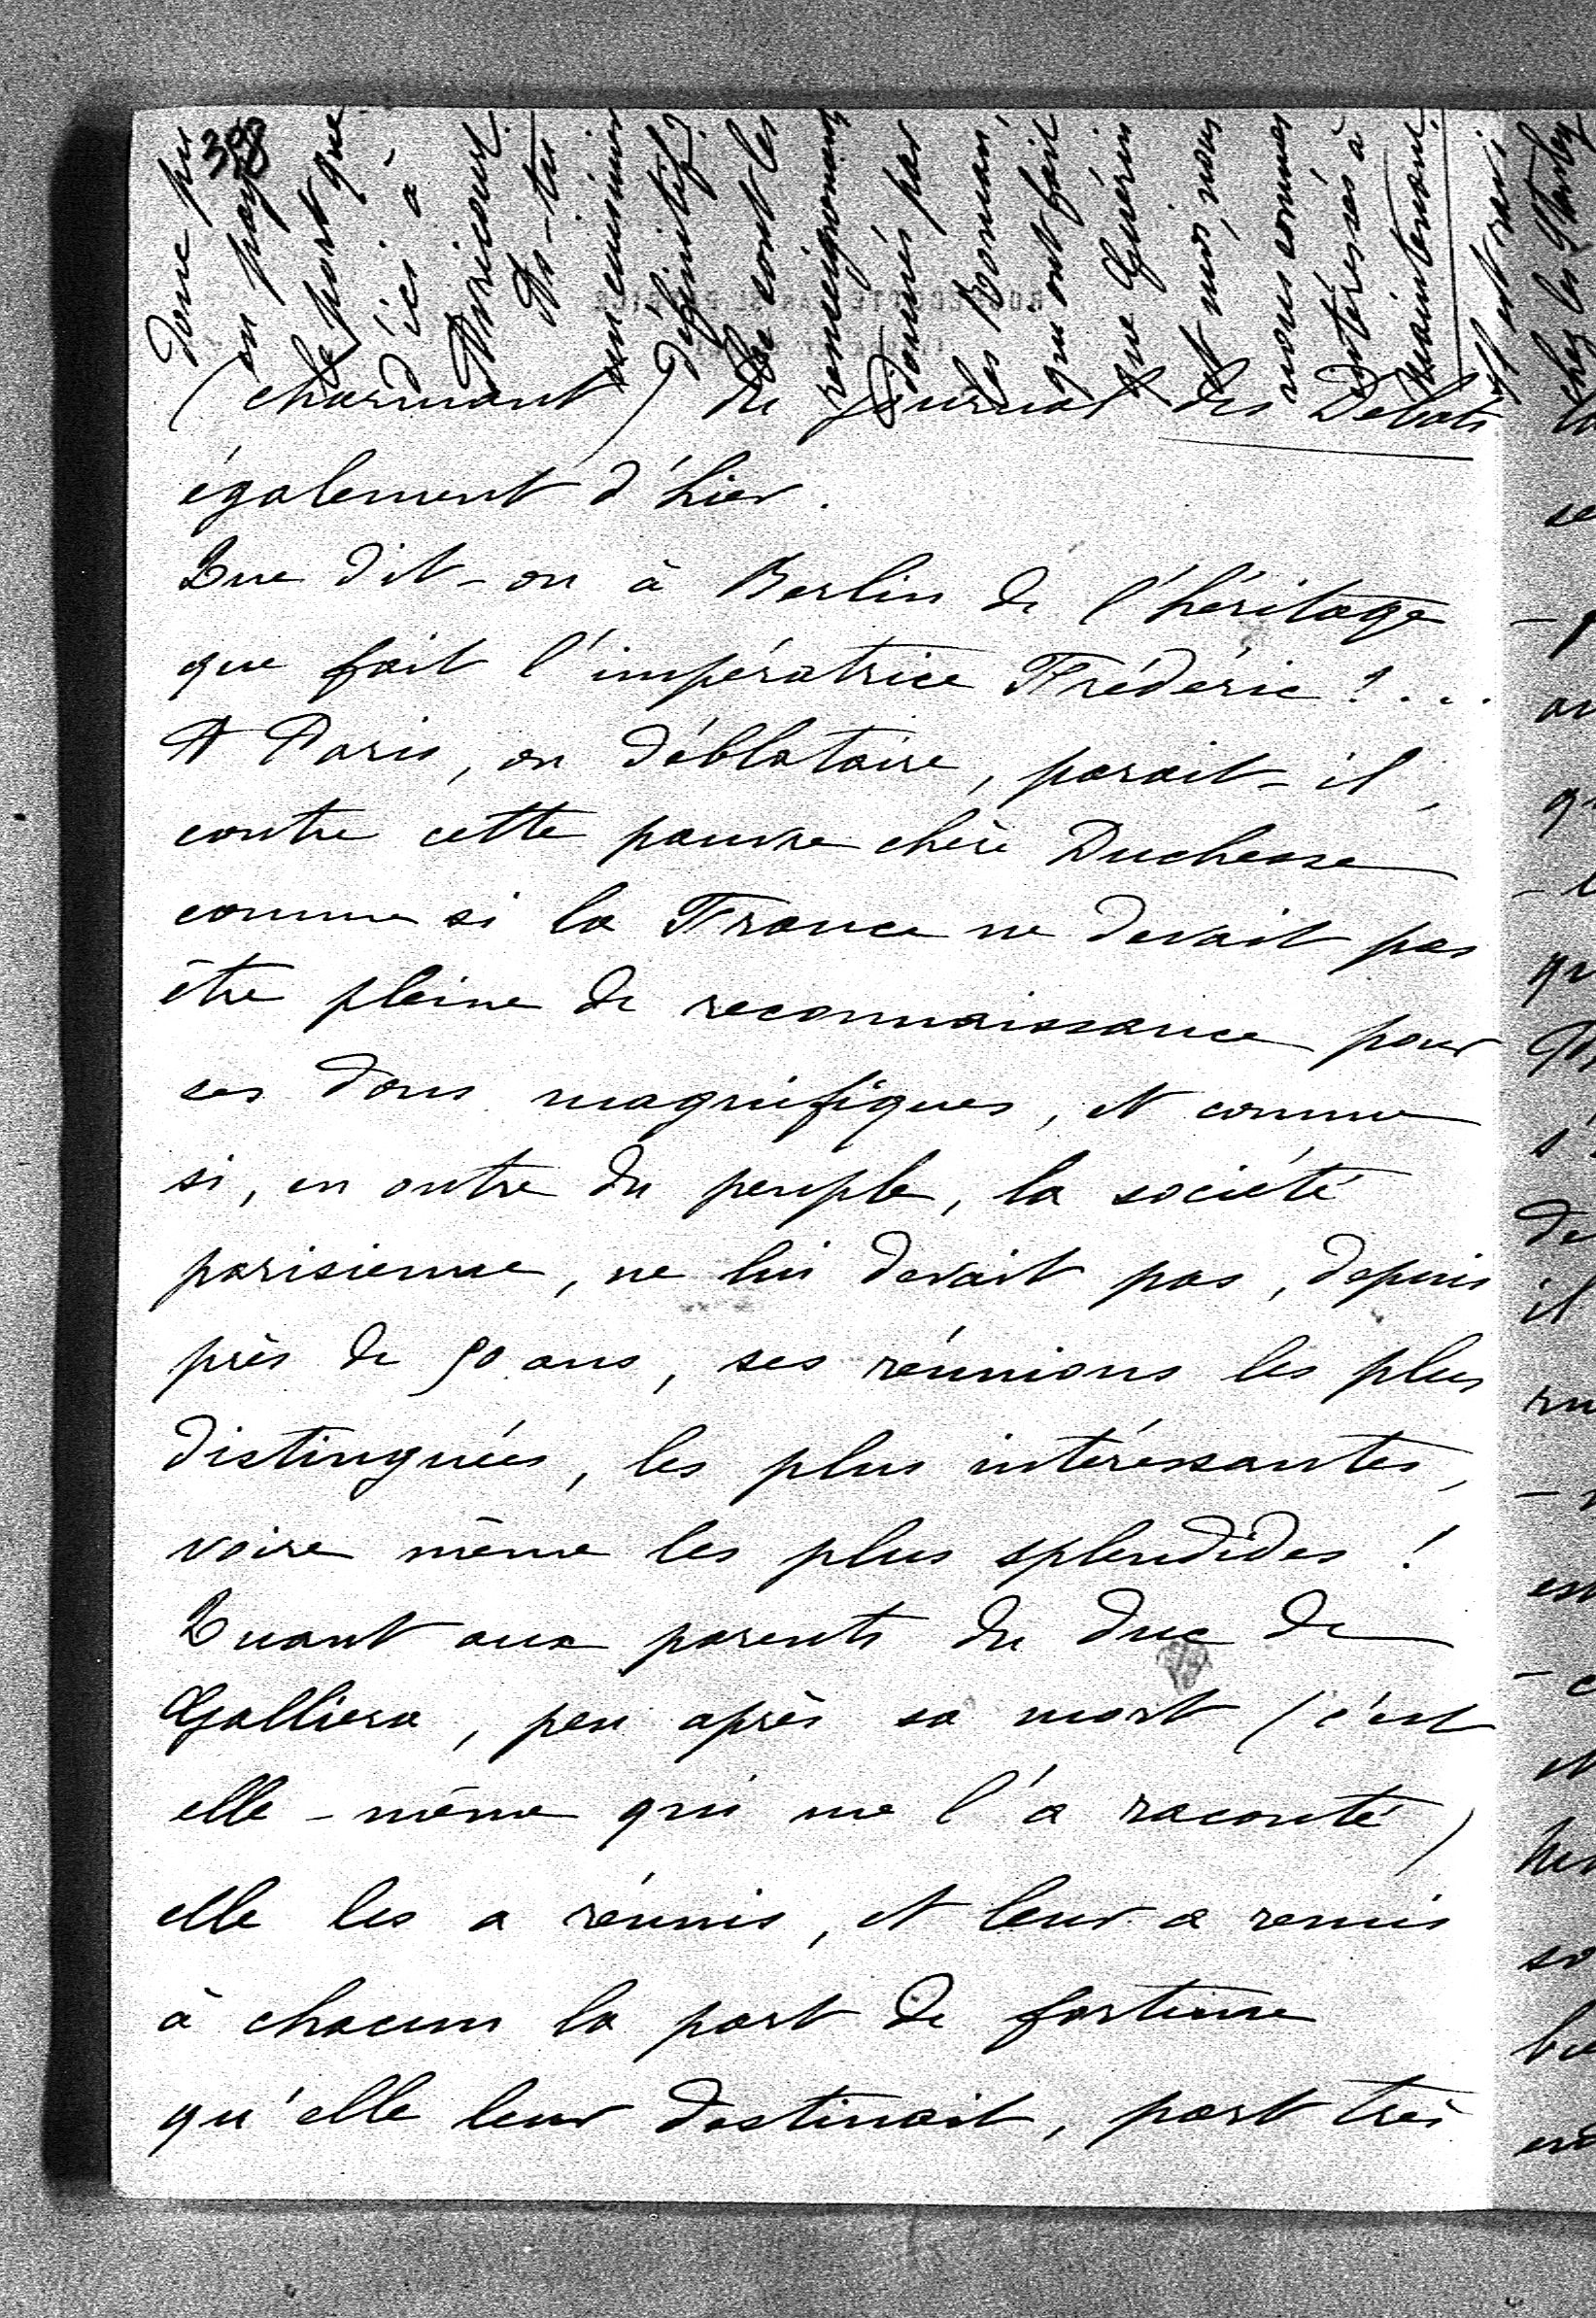 398
donc pu
en payer
le port que
d'ici à
Auricourt.
As-tu
un cuisinier
définitif?
Ce sont les
renseignements
donnés par
les Roman,
qui ont fait
que Guérin
et moi, nous
nous sommes
intéressés à
maintenant.
(charmant) du Journal des Debats
également d'hier.
Que dit-on à Berlin de l'héritage
que fait l'impératrice Frédéric ?...
A Paris, on déblataire, parait-il,
contre cette pauvre chère Duchesse
comme si la France ne devait pas
être pleine de reconnaissance pour
ses dons magnifiques, et comme
si, en outre du peuple, la société
parisienne, ne lui devait pas, depuis
près de 50 ans, ses réunions les plus
distinguées, les plus intéressantes,
voire même les plus splendides !
Quant aux parents du duc de
Galliera, peu après sa mort (c'est
elle-même qui me l'a raconté)
elle les a réunis, et leur a remis
à chacun la part de fortune
qu'elle leur destinait, part très